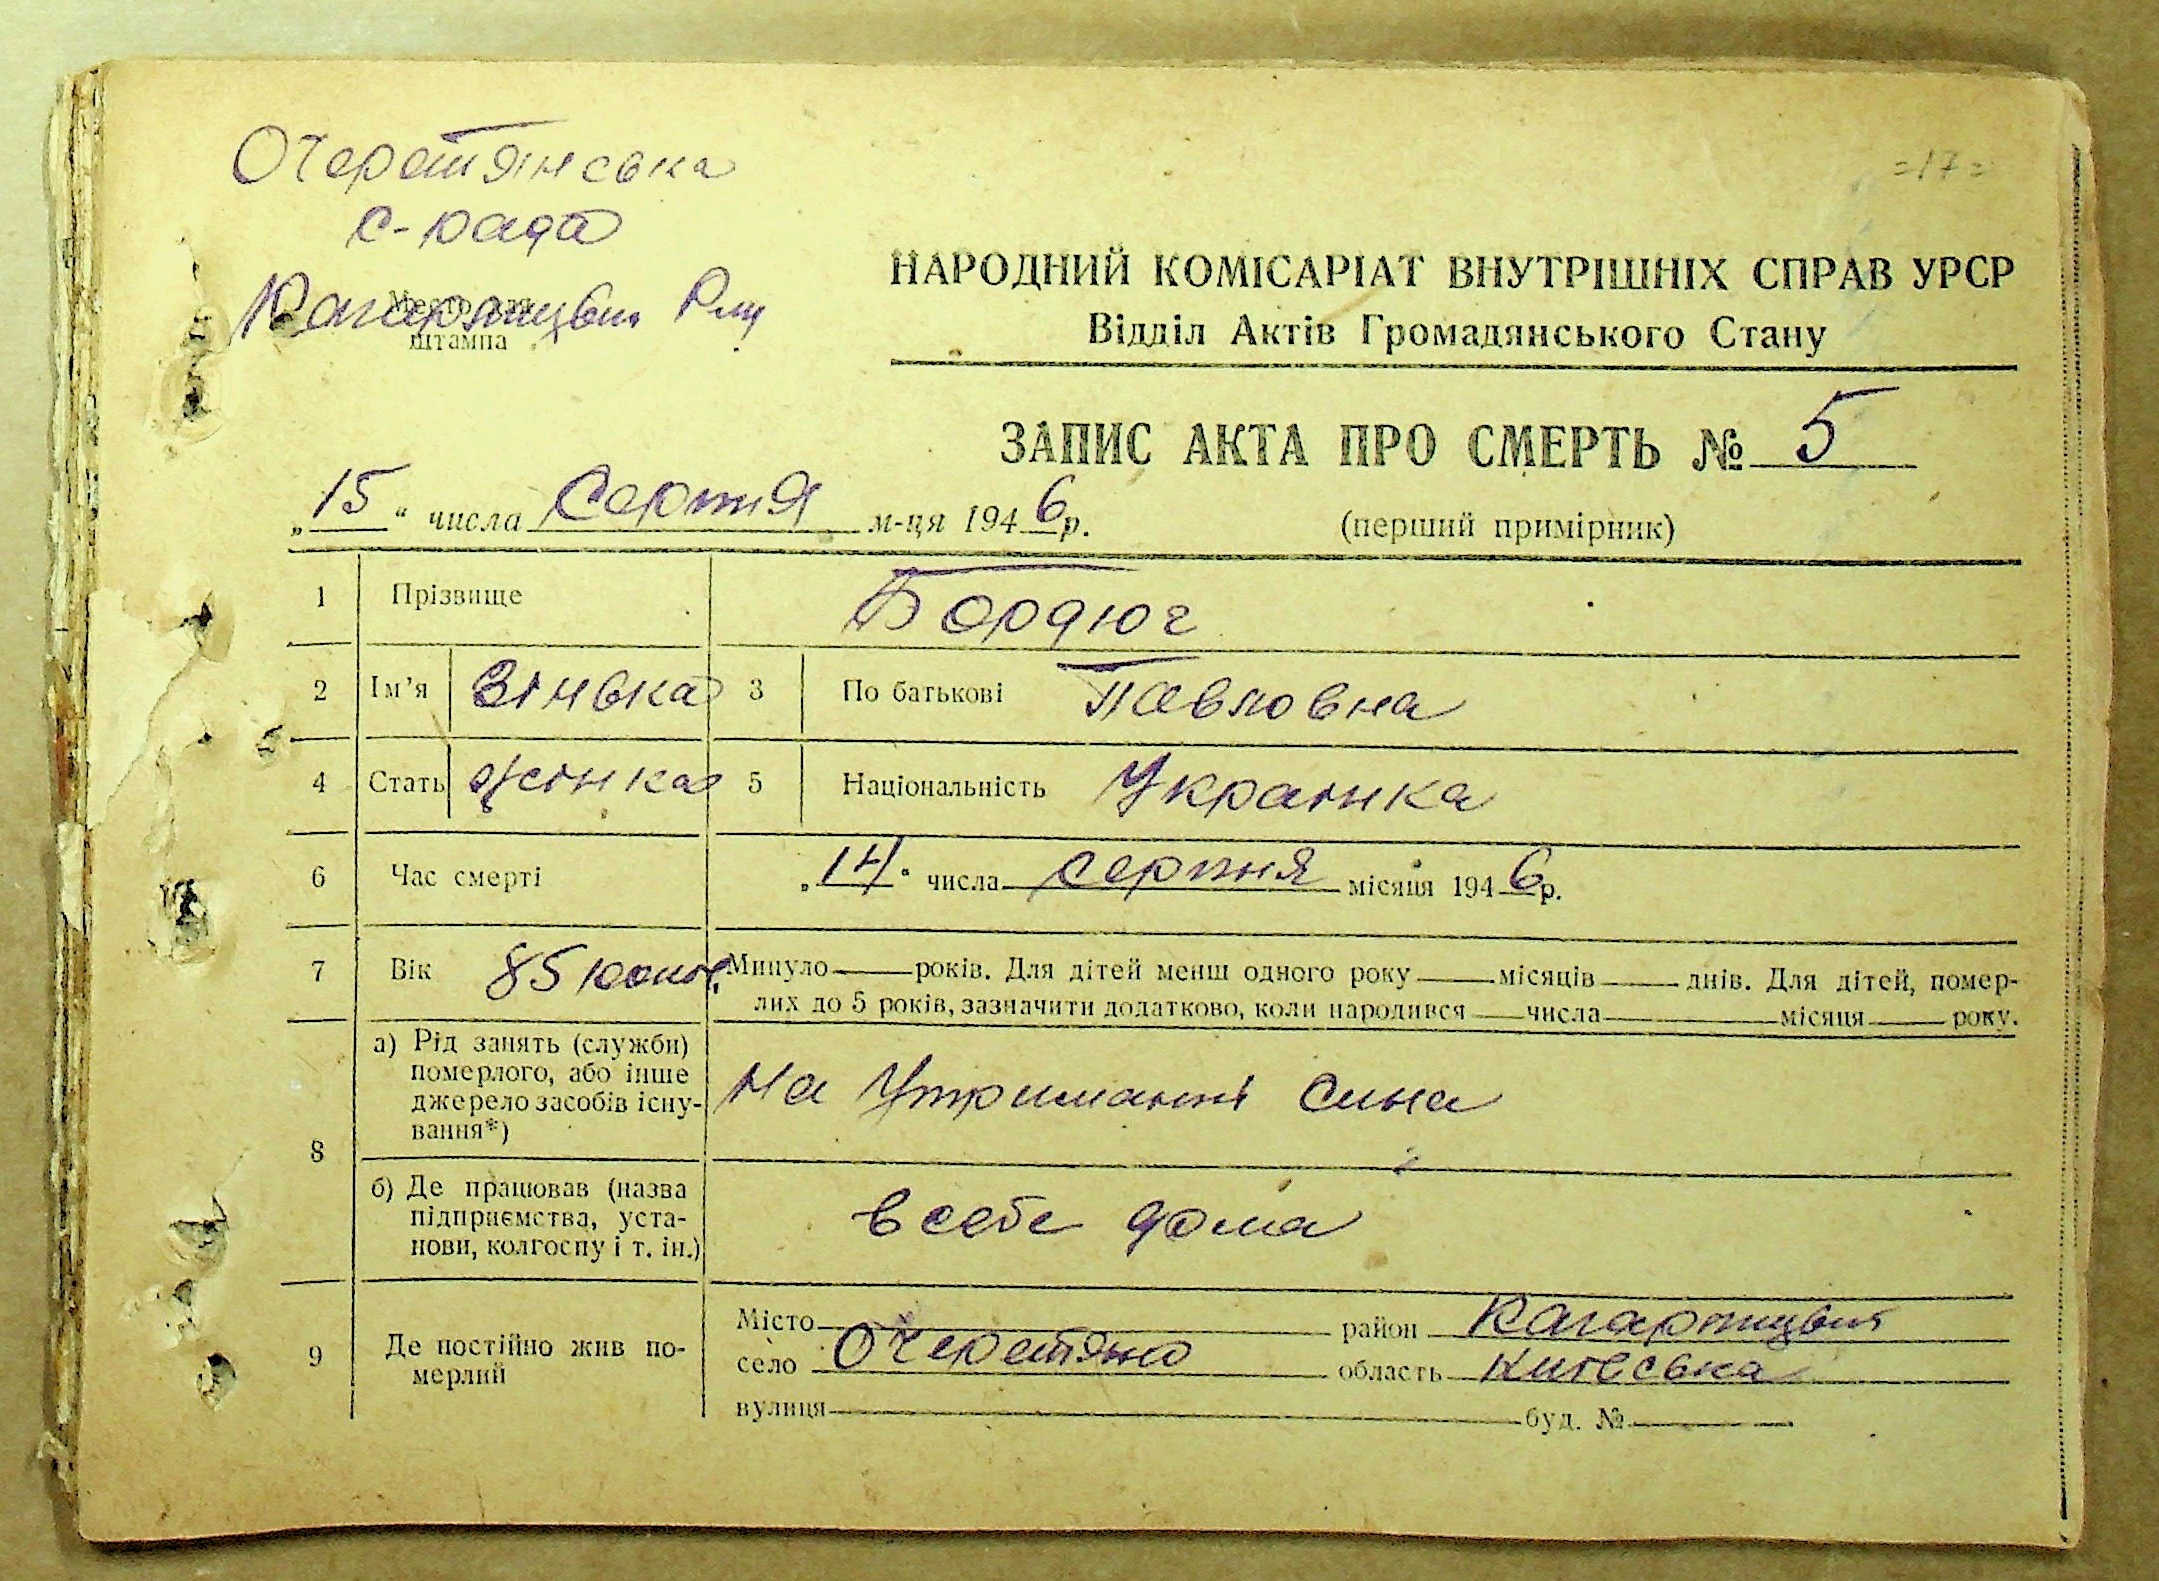 Очеретянська
с-рада
=17=
НАРОДНИЙ КОМІСАРІАТ ВНУТРІШНІХ СПРАВ УРСР
Відділ Актів Громадянського Стану
штампа
ЗАПИС АКТА ПРО СМЕРТЬ № 5
„15“ числа Серпня м-ця 1946р. (перший примірник)
1 Прізвище Бордюг
2 Ім’я Зінька 3 По батькові Павловна
4 Стать жінка 5 Національність Украінка
6 Час смерті „14“ числа серпня місяця 1946р.
7 Вік 85 Минуло років. Для дітей менш одного року місяців днів. Для дітей, помер-
лих до 5 років, зазначити додатково, коли народився числа місяця року.
8 а) Рід занять (служби)
померлого, або інше
джерело засобів існу-
вання*)
На Утриманні сина
б) Де працював (назва
підприємства, уста-
нови, колгоспу і т. ін.)
в себе дома
9 Де постійно жив по-
мерлий
Місто район
село Очеретяно область Киівська
вулиця буд. №